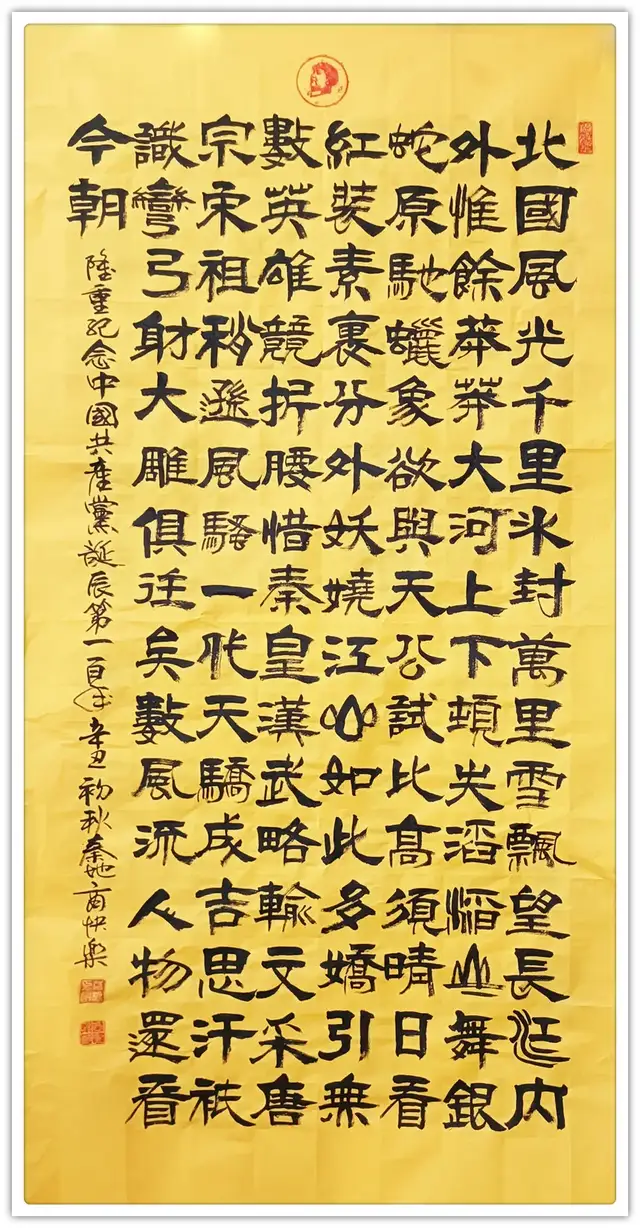 北國風光千里氷封萬里雪飄望長城內
外惟餘莽莽大河上下頓失滔滔山舞銀
蛇原馳蠟象欲與天公試比高須晴日看
紅裝素裹分外妖嬈江山如此多嬌引無
數英雄競折腰惜秦皇漢武略輸文采唐
宗宋祖稍遜風騷一代天驕成吉思汗祇
識彎弓射大雕俱往矣數風流人物還看
今朝
隆重紀念中國共產黨誕辰第一百年 辛丑初秋秦地商快樂